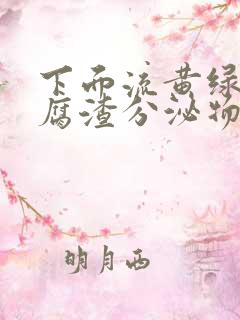 下面流黄绿
腐渣分泌物
明月西